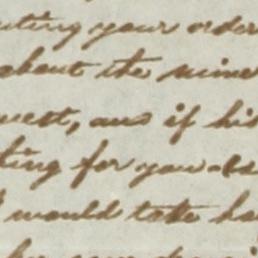 uting your order
about the mine
west, and if his
ting for you
I would take ha